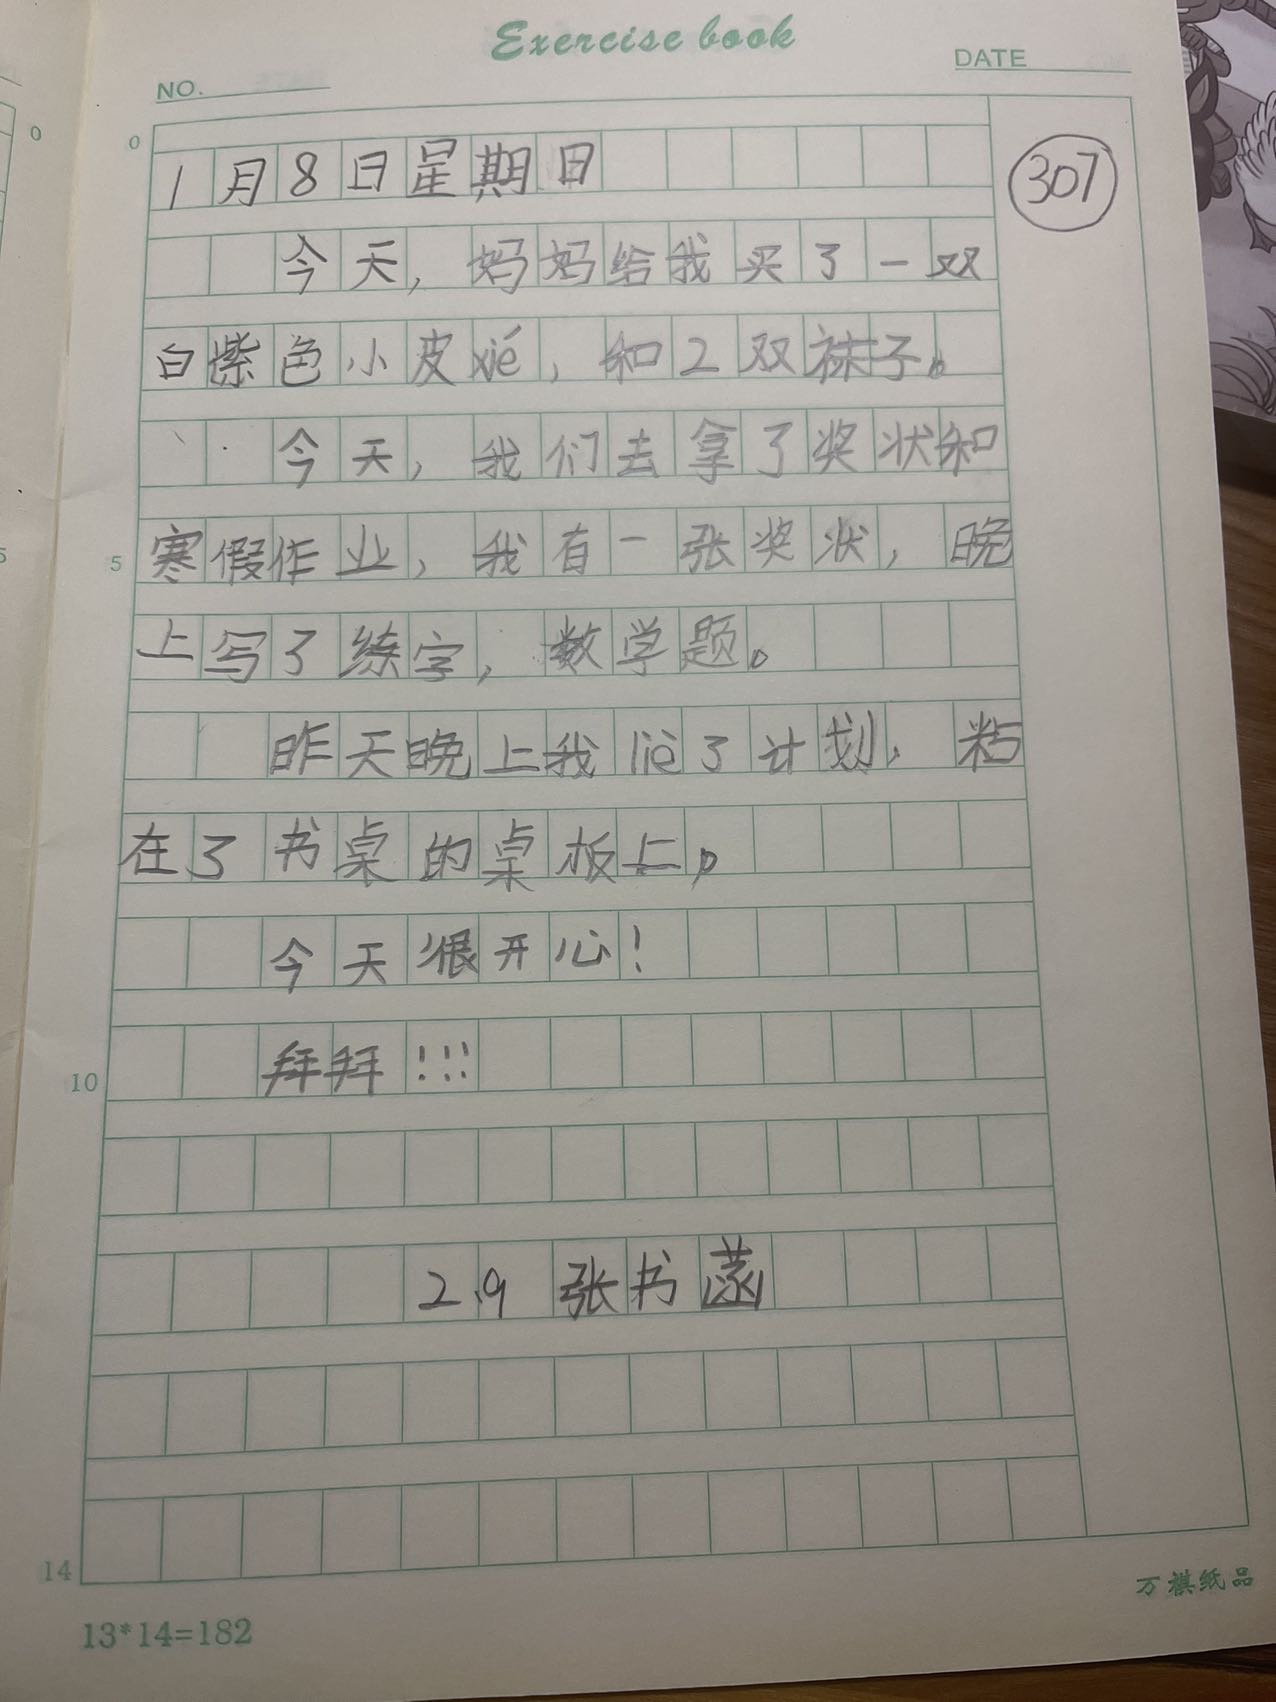 Exercise book
NO.
DATE
0
0
307
1月8日星期日
今天，妈妈给我买了一双
白紫色小皮xié，和2双袜子。
今天，我们去拿了奖状和
5
寒假作业，我有一张奖状，晚
上写了练字，数学题。
昨天晚上我liè了计划，粘
在了书桌的桌板上。
今天很开心！
10
拜拜！！！
29 张书菡
14
万祺纸品
13*14=182